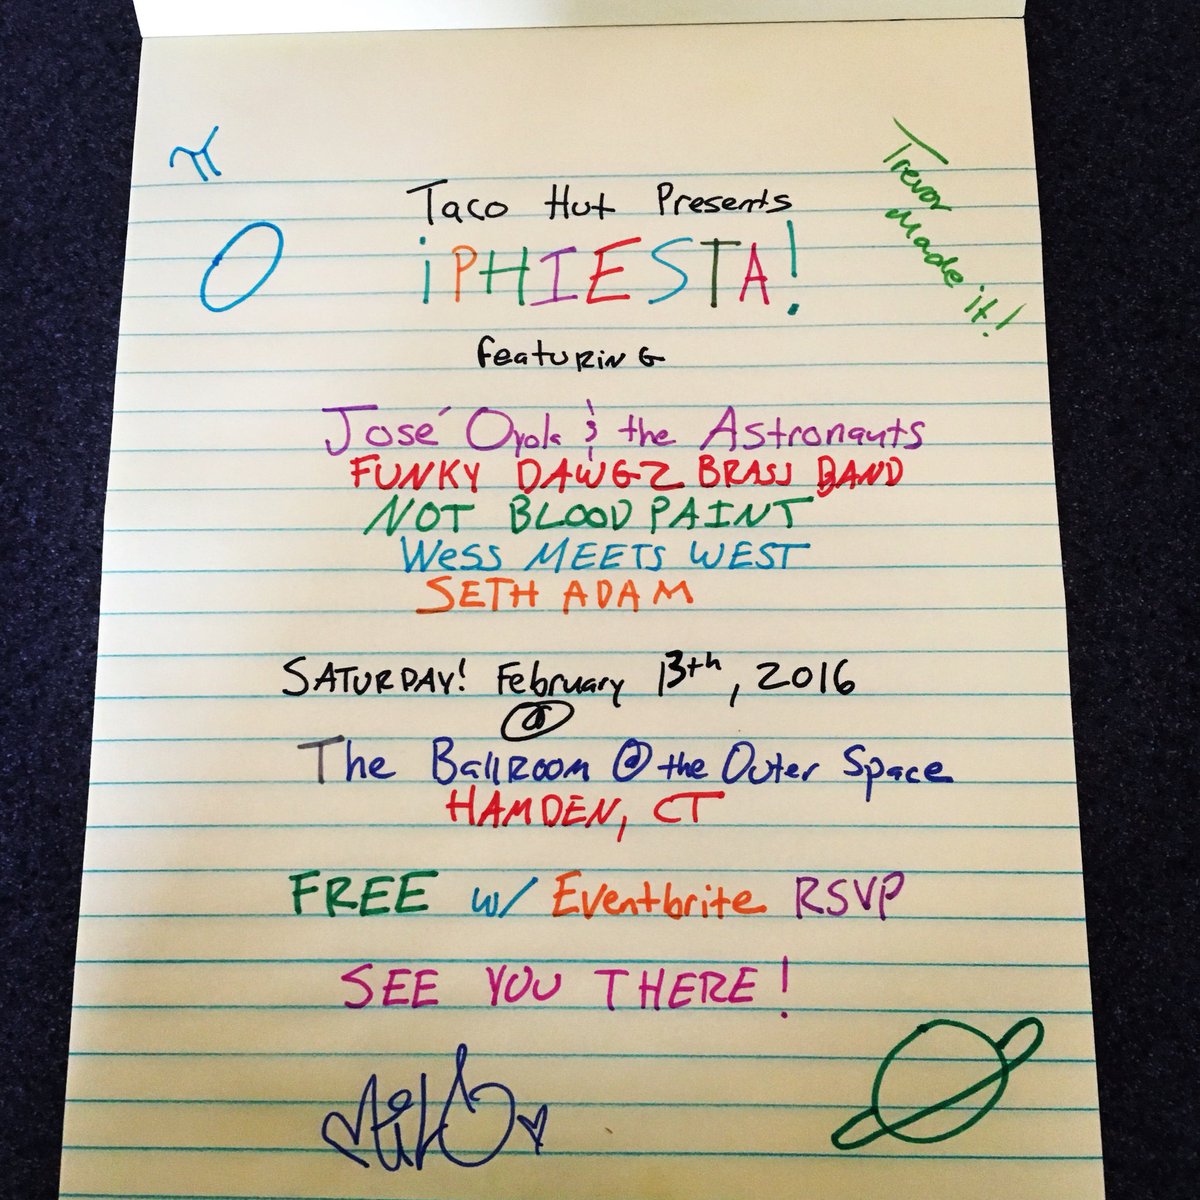 π
O
Trevor
Made it!
Taco Hut Presents
¡PHIESTA!
Featuring
José Oyola & the Astronauts
FUNKY DAWGZ BRASS BAND
NOT BLOOD PAINT
Wess MEETS WEST
SETH ADAM
SATURDAY! February 13th, 2016
@
The BallRoom @ the Outer Space
HAMDEN, CT
FREE w/ Eventbrite RSVP
SEE YOU THERE!